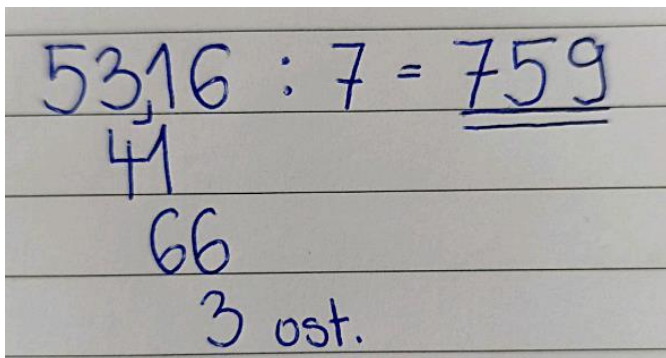 53,16 : 7 = 759
41
66
3 ost.